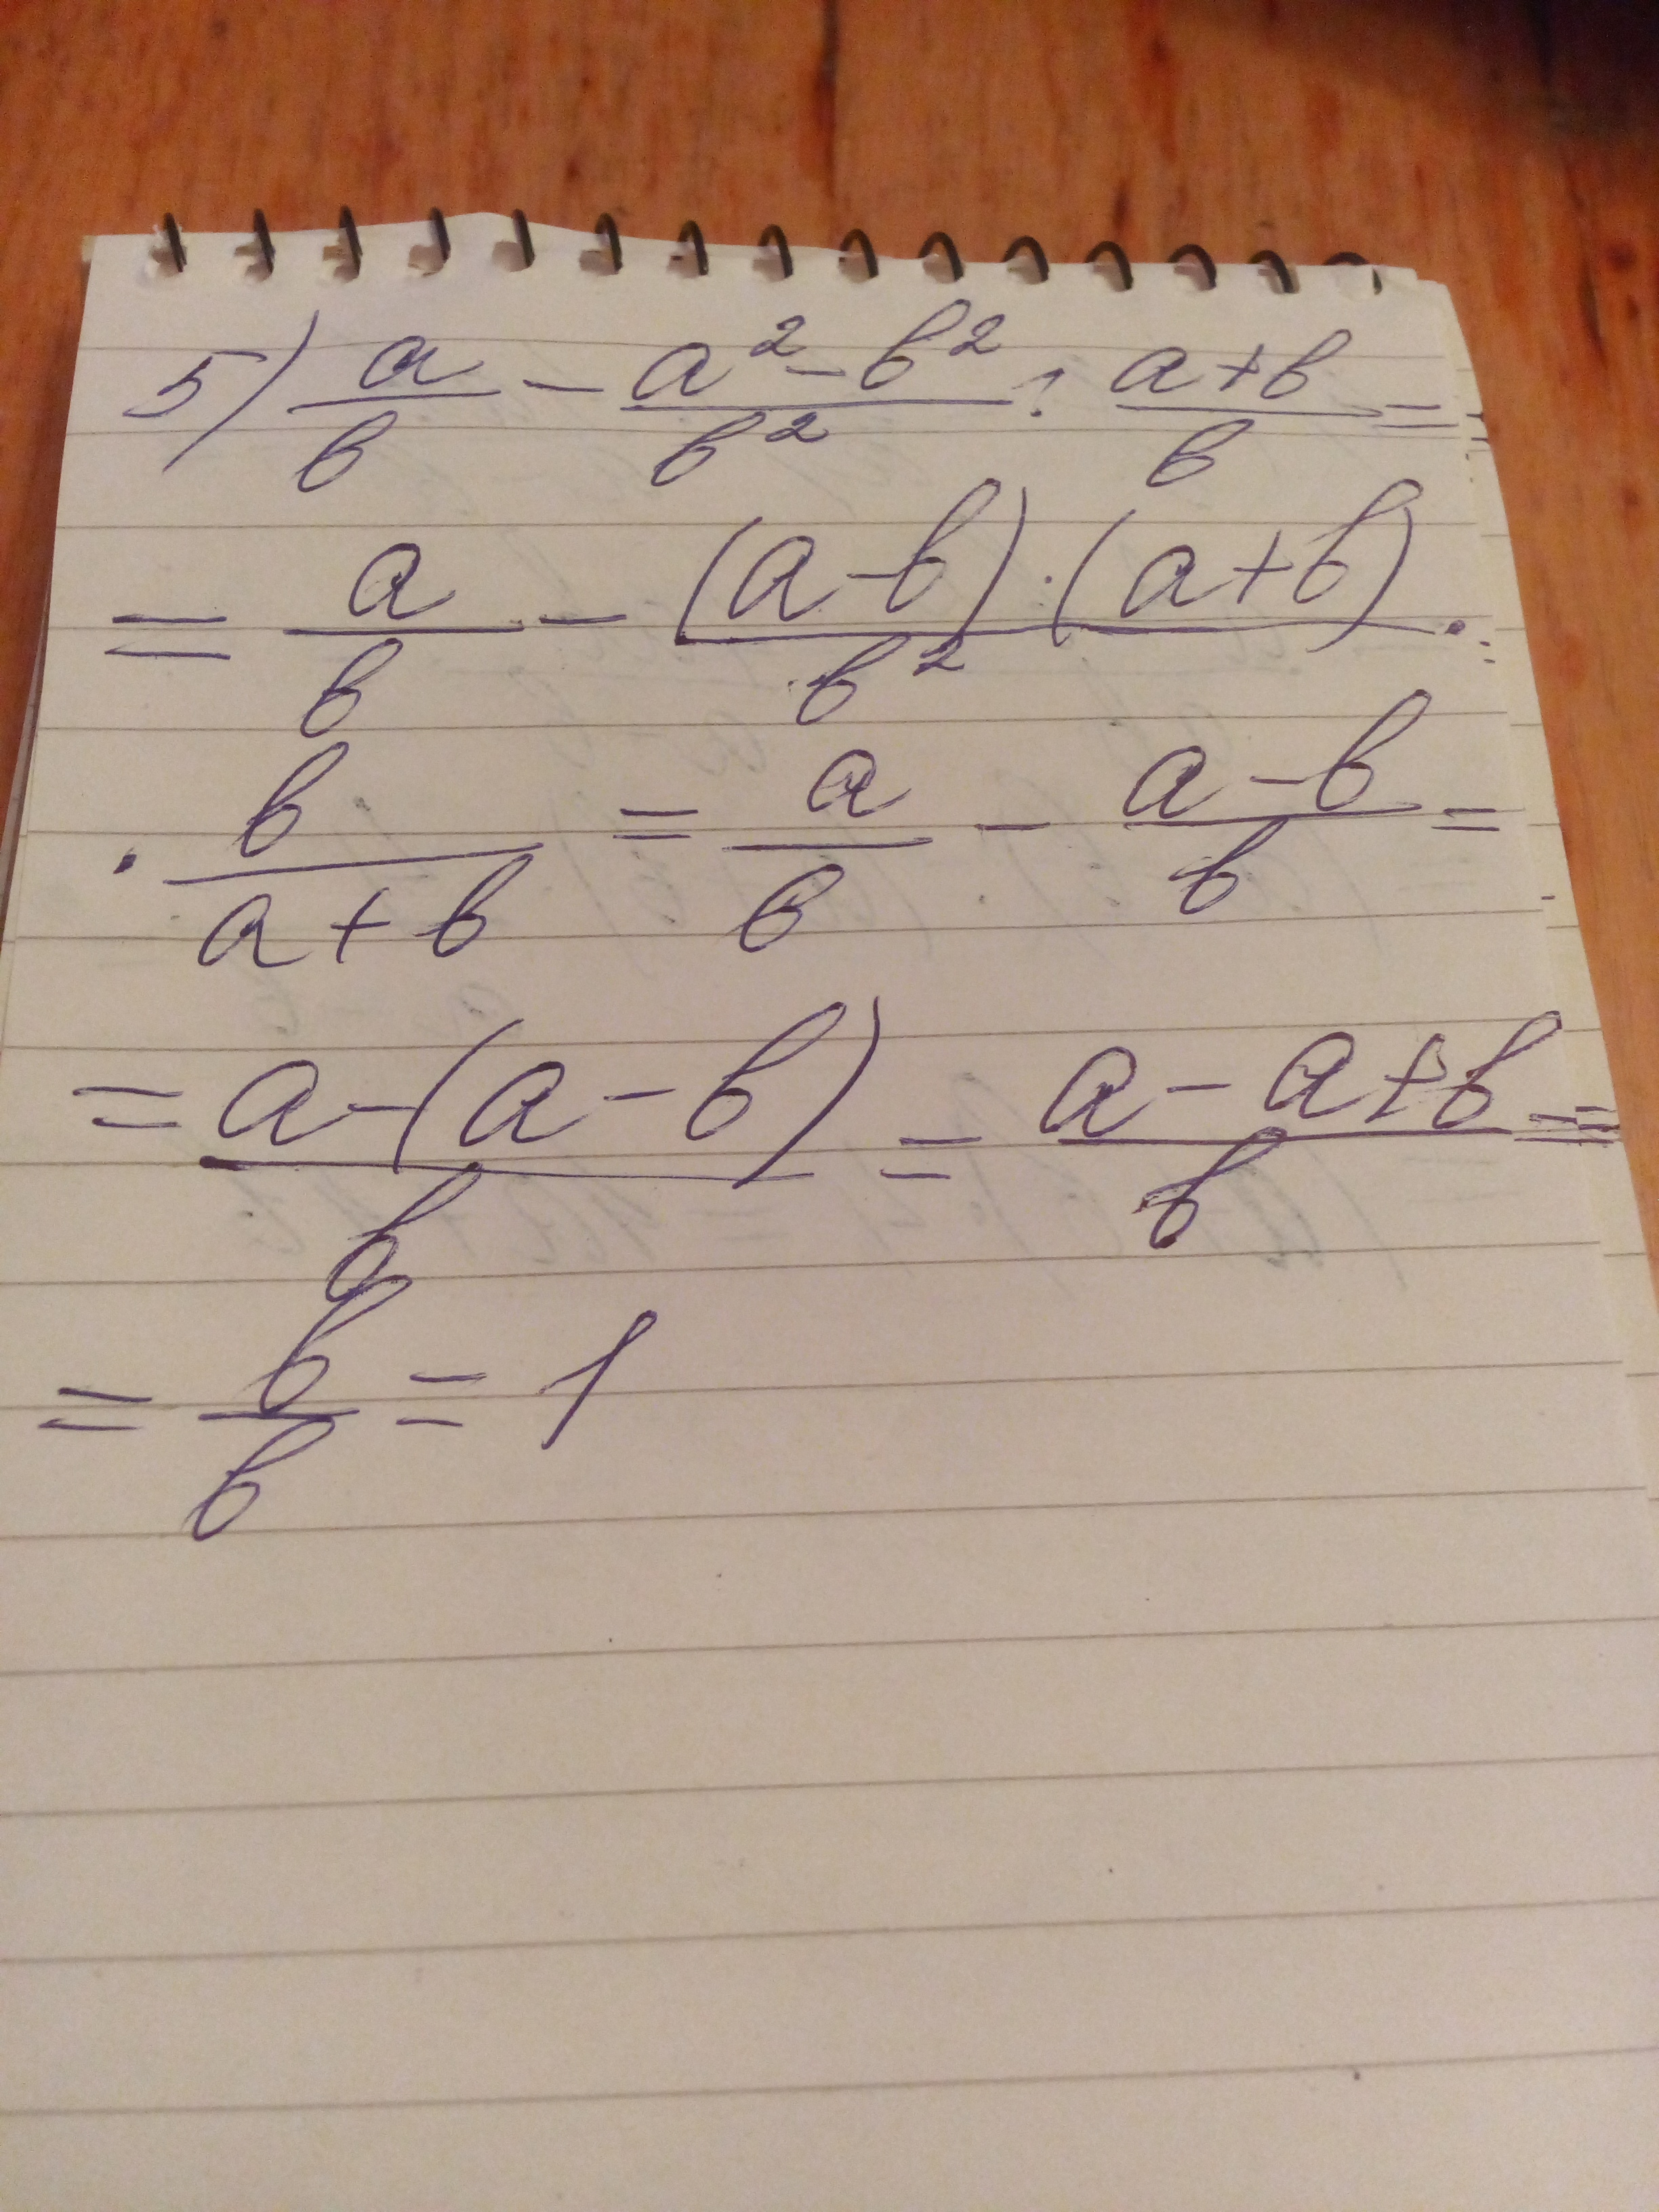 5) a/b - (a² - b²)/b² : (a+b)/b =
= a/b - (a-b)·(a+b)/b² ·
· b/(a+b) = a/b - (a-b)/b =
= (a-(a-b))/b = (a-a+b)/b =
= b/b = 1